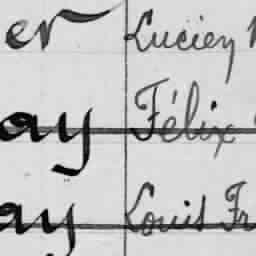 er Lucien
ay Félix
ay Louis Fr